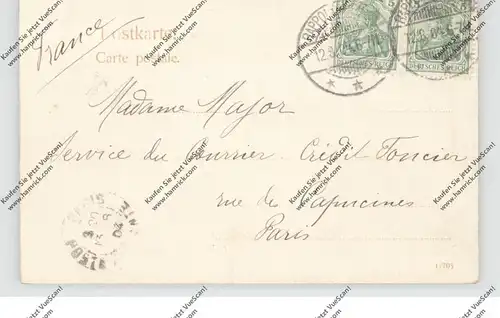 France
Postkarte
Carte postale.
DEUTSCHES REICH DEUTSCHES REICH
Madame Major
Service du Courrier Crédit Foncier
rue de Capucines
Paris
Kaufen Sie jetzt VueScan!
www.hamrick.com